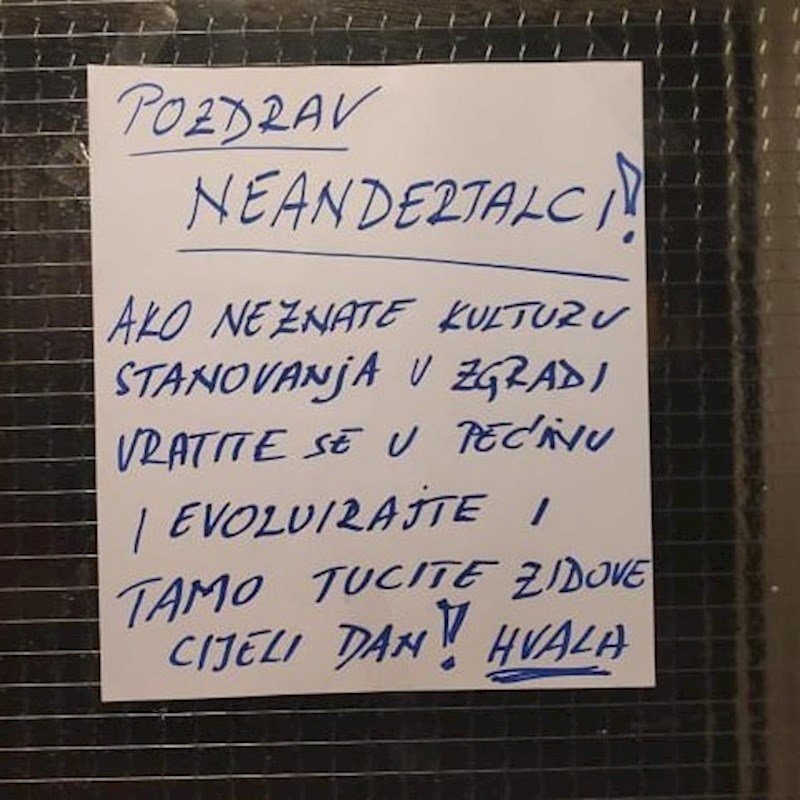 POZDRAV
NEANDERTALCI!
AKO NEZNATE KULTURU
STANOVANjA U ZGRADI
VRATITE SE U PEĆINU
I EVOLUIRAJTE I
TAMO TUCITE ZIDOVE
CIJELI DAN! HVALA